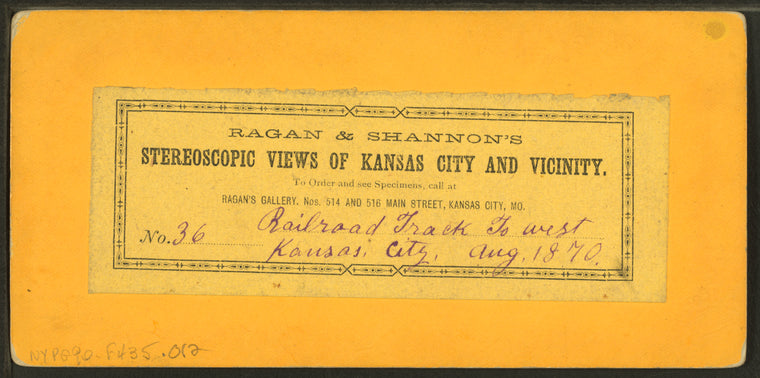 RAGAN & SHANNON'S
STEREOSCOPIC VIEWS OF KANSAS CITY AND VICINITY.
To Order and see Specimens, call at
RAGAN'S GALLERY, Nos. 514 AND 516 MAIN STREET, KANSAS CITY, MO.
No. 36 Railroad Track To west
Kansas City, Aug. 1870.
NYPG90-F435.012